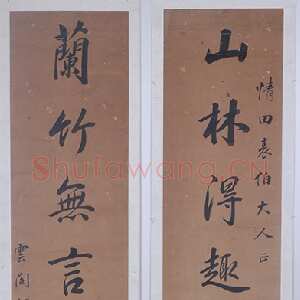 情田表伯大人正
山林得趣
蘭竹無言
雲閣
Shufawang.CN